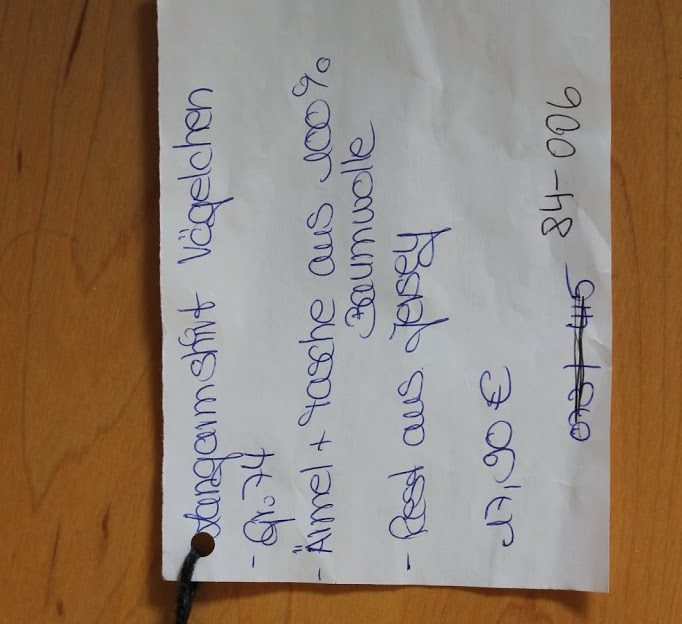 Langarmshirt Vögelchen
- Gr. 74
- Ärmel + Tasche aus 100%
Baumwolle
- Rest aus Jersey
17,90 €
84-006